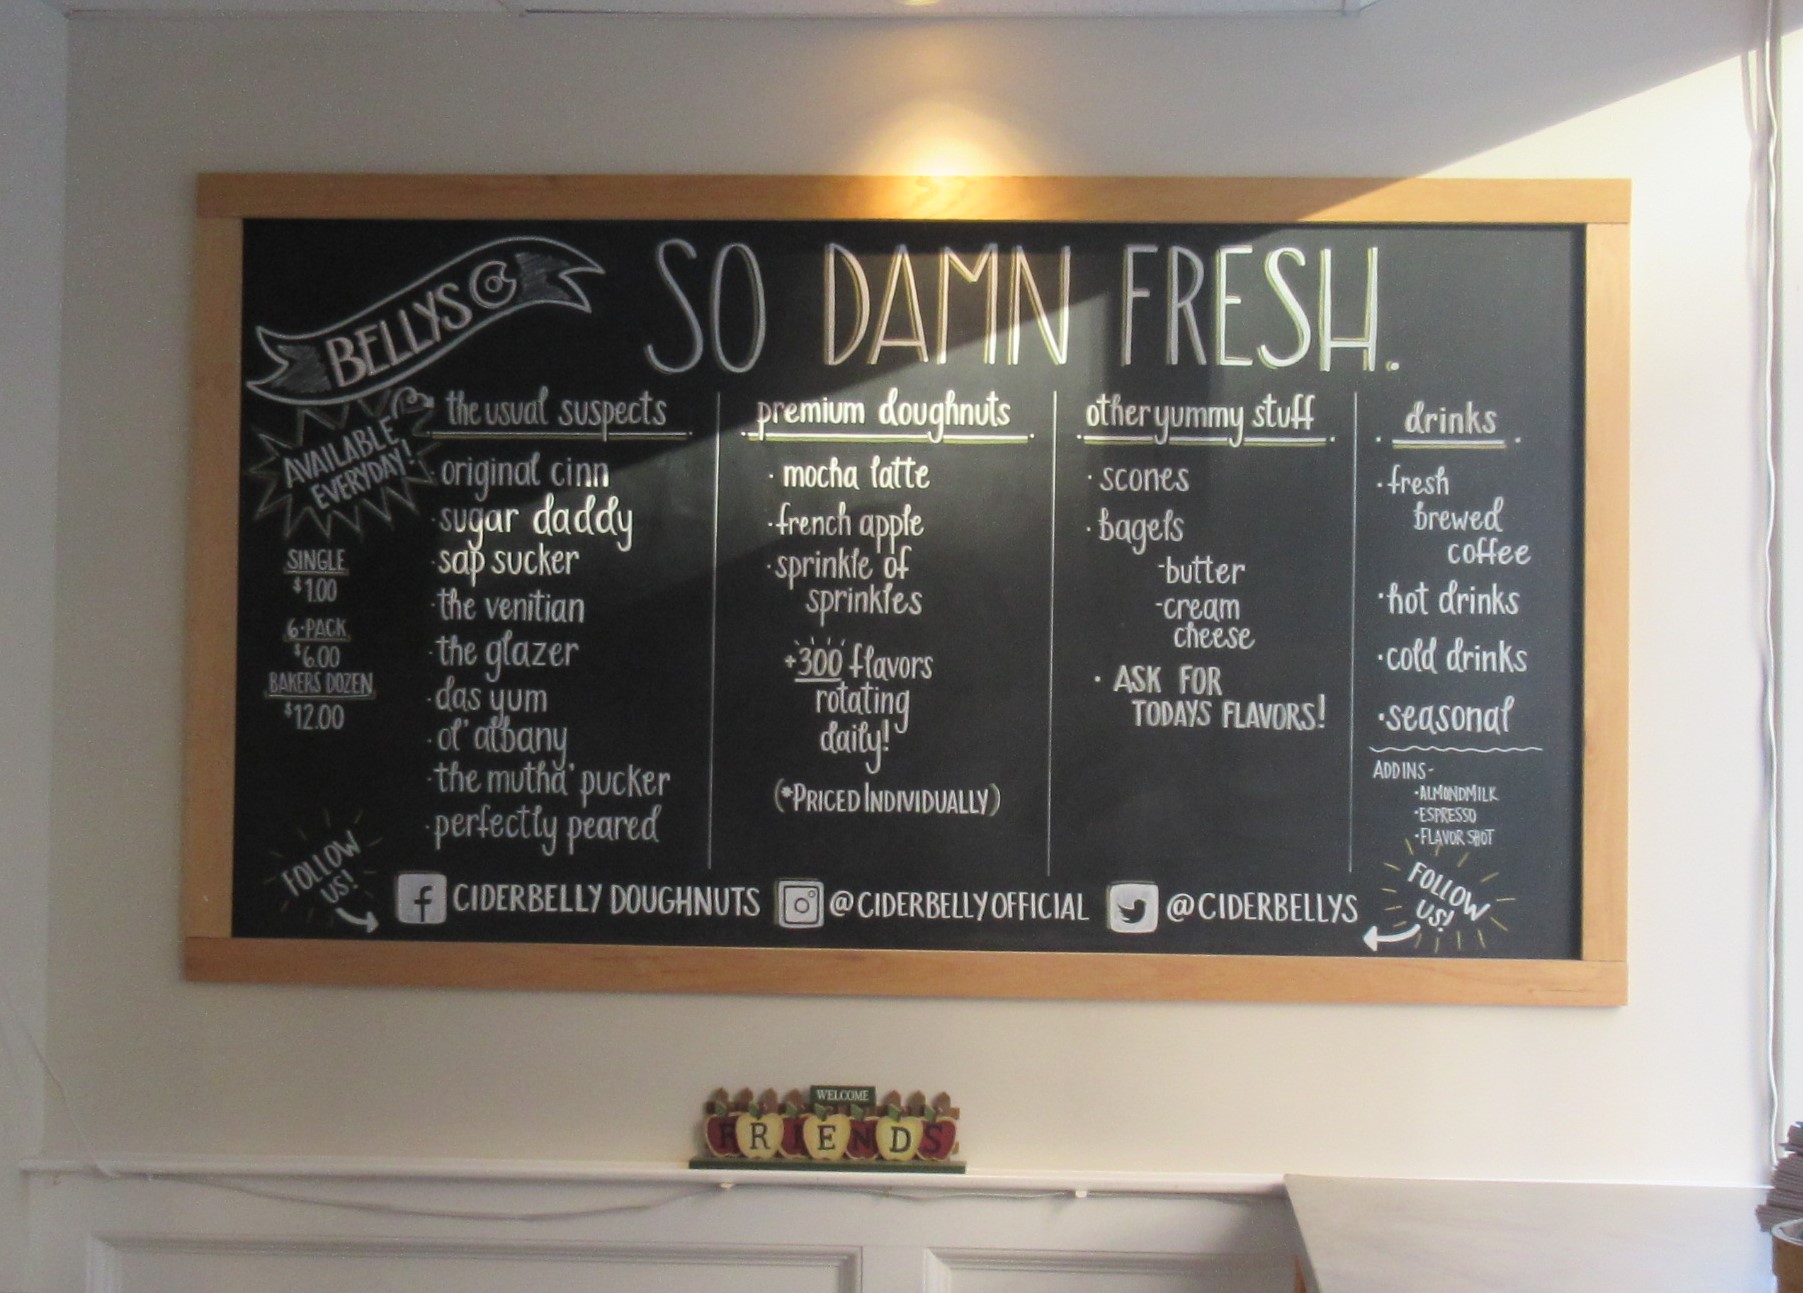 BELLYS
SO DAMN FRESH.
AVAILABLE
EVERYDAY!
SINGLE
$1.00
6-PACK
$6.00
BAKERS DOZEN
$12.00
the usual suspects
· original cinn
· sugar daddy
· sap sucker
· the venitian
· the glazer
· das yum
· ol' albany
· the mutha' pucker
· perfectly peared
premium doughnuts
· mocha latte
· french apple
· sprinkle of
sprinkles
+300 flavors
rotating
daily!
(*PRICED INDIVIDUALLY)
other yummy stuff
· scones
· bagels
-butter
-cream
cheese
· ASK FOR
TODAYS FLAVORS!
· drinks ·
· fresh
brewed
coffee
· hot drinks
· cold drinks
· seasonal
ADD INS-
· ALMONDMILK
· ESPRESSO
· FLAVOR SHOT
FOLLOW
US!
f CIDERBELLY DOUGHNUTS @CIDERBELLYOFFICIAL @CIDERBELLYS
FOLLOW
US!
WELCOME
FRIENDS